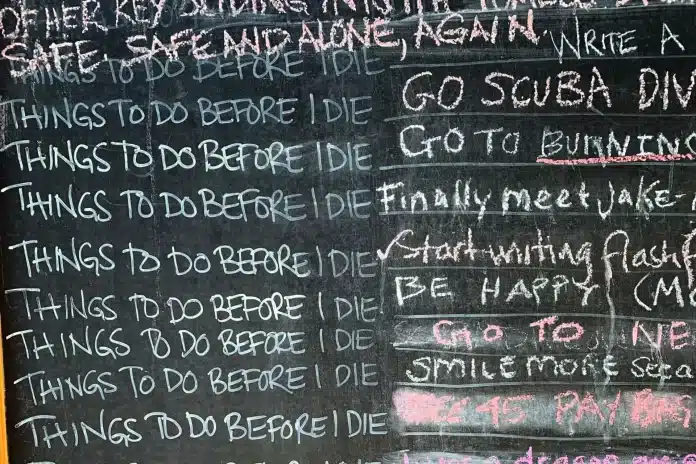 OF HER KEY SLIDING INTO THE
SAFE. SAFE AND ALONE, AGAIN. WRITE A
THINGS TO DO BEFORE I DIE
THINGS TO DO BEFORE I DIE GO SCUBA DIV
THINGS TO DO BEFORE I DIE GO TO BURNING
THINGS TO DO BEFORE I DIE Finally meet Jake
THINGS TO DO BEFORE I DIE Start writing flash
THINGS TO DO BEFORE I DIE BE HAPPY (M
THINGS TO DO BEFORE I DIE GO TO NE
THINGS TO DO BEFORE I DIE SMILE MORE
THINGS TO DO BEFORE I DIE 45 PAY